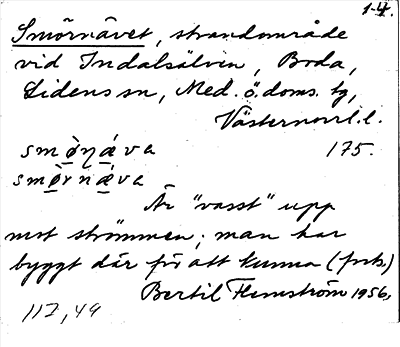 1-4.
Smörnävet, strandområde
vid Indalsälven, Boda,
Lidens sn, Med. ö. doms. tg,
Västernorrl. l.
smö̀ŋǽva 175.
smö̀rnǽva
Är "vasst" upp
mot strömmen; man har
byggt där för att kunna (forts.)
Bertil Flemström 1956,
117,49